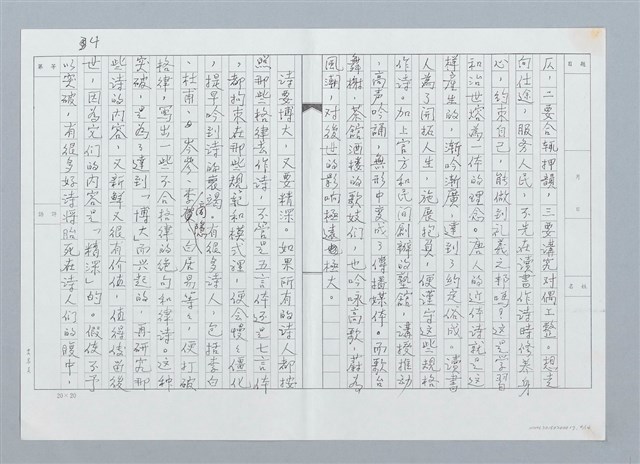 4
仄,二要合執押韻,三要講究對偶工整。想走
向仕途,服務人民,不先在讀書作詩時修養身
心,約束自己,能做到禮義之邦嗎?這是學習
和治世熔為一体的理念。唐人的近体詩就是這
樣產生的,漸吟漸廣,達到了約定俗成。讀書
人為了開拓人生,施展抱負,便謹守這些規格
作詩。加上官方和民間創辦的塾館,講授推動
,高声吟誦,無形中变成了傳播媒体。而歌台
舞榭,茶館酒樓的歌妓們,也吟詠高歌,蔚為
風潮,對後世的影响極遠極大。
詩要博大,又要精深。如果所有的詩人都按
照那些格律去作詩,不管是五言体还是七言体
,都拘束在那些規範和模式裡,便会慢慢僵化
,提早吟到詩的衰竭。有很多詩人,包括李白
、杜甫、岑參、李商隱、白居易等等,便打破
格律,寫出一些不合格律的絕句和律詩。這種
突破,是為了達到「博大」而興起的,再研究那
些詩的內容,又新鮮又很有价值,值得後留後
世,因為它们的內容是「精深」的。假使不予
以突破,有很多好詩將胎死在詩人们的腹中,
20×20